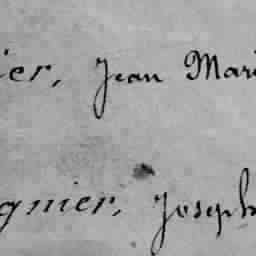 ier, Jean Mari
gnier, Joseph